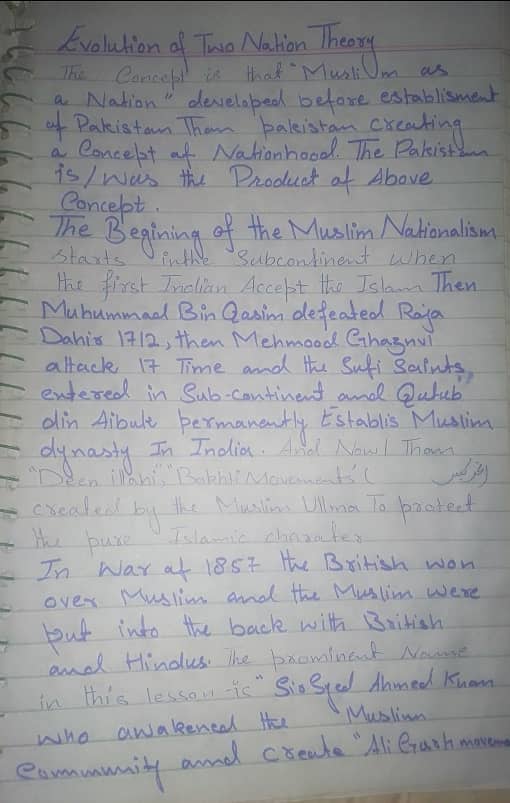 Evolution of Two Nation Theory
The Concept is that "Muslim as
a Nation" developed before establisment
of Pakistan Then pakistan creating
a Concept of Nationhood. The Pakistan
is/was the Product of Above
Concept.
The Begining of the Muslim Nationalism
starts inthe Subcontinent when
the first Indian Accept the Islam Then
Muhummad Bin Qasim defeated Raja
Dahir 1712, then Mehmood Ghaznvi
attack 17 Time and the Sufi Saints
entered in Sub-continent and Qutub
din Aibuk permanently Establis Muslim
dynasty In India. And Now! Then
"Deen illahi", "Bakhti Movements" (
created by the Muslim Ullma To protect
the pure Islamic character
In War of 1857 the British won
over Muslim and the Muslim were
put into the back with British
and Hindus. The prominent Name
in this lesson is "Sir Syed Ahmed Khan
who awakened the Muslim
Community and create "Ali Garh movem